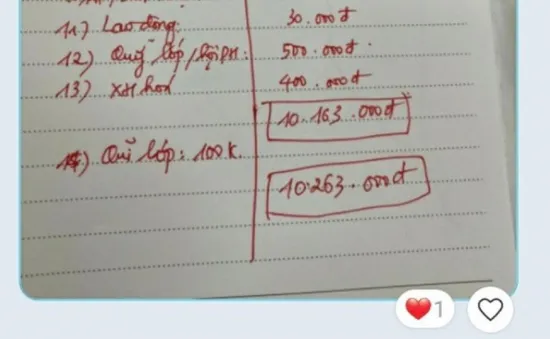 11) Lao động: 30.000đ
12) Quỹ lớp/hội PH: 500.000đ
13) XH hoá 400.000đ
10.163.000đ
14) Quĩ lớp: 100k.
10.263.000đ
1